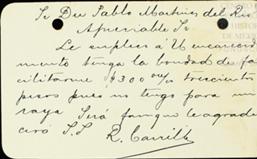 Sr Dn Pablo Martinez del Rio
Apreciable Sr
Le suplico á U encarecida
mente tenga la bondad de fa
cilitarme $300 trescientos
pesos pues no tengo para mi
raya Será favor que le agrade
ceré S.S. R. Carrillo